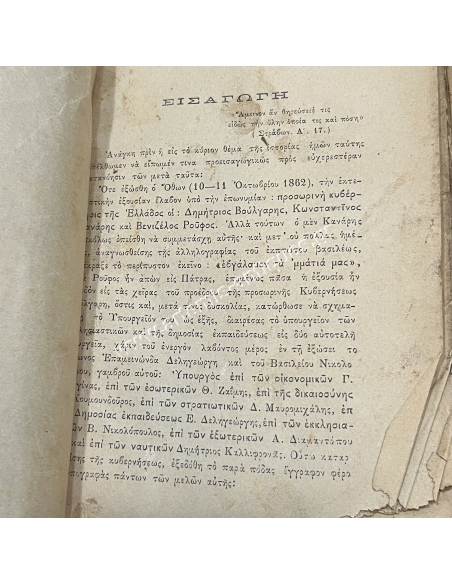 ΕΙΣΑΓΩΓΗ
«Ἄμεινον ἂν θηρεύσειέ τις
εἰδὼς τὴν ὕλην ὁποία τις καὶ πόση»
(Στράβων. Α΄. 17.)
Ἀνάγκη πρὶν ἢ εἰς τὸ κύριον θέμα τῆς ἱστορίας ἡμῶν ταύτης
ἔλθωμεν νὰ εἴπωμέν τινα προεισαγωγικῶς πρὸς εὐχερεστέραν
τανόησιν τῶν μετὰ ταῦτα:
Ὅτε ἐξώσθη ὁ Ὄθων (10—11 Ὀκτωβρίου 1862), τὴν ἐκτε-
στικὴν ἐξουσίαν ἔλαβον ὑπὸ τὴν ἐπωνυμίαν: προσωρινὴ κυβέρ-
σις τῆς Ἑλλάδος οἱ: Δημήτριος Βούλγαρης, Κωνσταντῖνος
ανάρης καὶ Βενιζέλος Ροῦφος. Ἀλλὰ τούτων ὁ μὲν Κανάρης
κόλως ὀπείσθη νὰ συμμετάσχῃ αὐτῆς· καὶ μετ' οὐ πολλὰς ἡμέ-
, ἀναγνωσθείσης τῆς ἀλληλογραφίας τοῦ ἐκπτώτου βασιλέως,
κραξε τὸ περίπυστον ἐκεῖνο: «ἐβγάλαμεν τὰ 'μμάτιά μας»,
Ροῦφος ἦν ἀπὼν εἰς Πάτρας, ἑπομένως πᾶσα ἡ ἐξουσία ἦν
δὸν εἰς τὰς χεῖρας τοῦ προέδρου τῆς προσωρινῆς Κυβερνήσεως
λγαρη, ὅστις καὶ, μετά τινος δυσκολίας, κατώρθωσε νὰ σχημα-
τὸ Ὑπουργεῖον ὡς ἑξῆς, διαιρέσας τὸ ὑπουργεῖον τῶν
λησιαστικῶν καὶ τῆς δημοσίας ἐκπαιδεύσεως εἰς δύο αὐτοτελῆ
υργεῖα, χάριν τοῦ ἐνεργὸν λαβόντος μέρος ἐν τῇ ἐξώσει τοῦ
ωνος Ἐπαμεινώνδα Δεληγεώργη καὶ τοῦ Βασιλείου Νικολο
ου, γαμβροῦ αὐτοῦ: Ὑπουργὸς ἐπὶ τῶν οἰκονομικῶν Γ.
γίνας, ἐπὶ τῶν ἐσωτερικῶν Θ. Ζαΐμης, ἐπὶ τῆς δικαιοσύνης
Κουμουνδοῦρος, ἐπὶ τῶν στρατιωτικῶν Δ. Μαυρομιχάλης, ἐπ
Δημοσίας ἐκπαιδεύσεως Ε. Δεληγεώργης, ἐπὶ τῶν ἐκκλησια-
ῶν Β. Νικολόπουλος, ἐπὶ τῶν ἐξωτερικῶν Α. Διαμαντόπου
καὶ ἐπὶ τῶν ναυτικῶν Δημήτριος Καλλιφρονᾶς. Οὕτω κατα
ίσης τῆς κυβερνήσεως, ἐξεδόθη τὸ παρὰ πόδας ἔγγραφον φέρο
πογραφὰς πάντων τῶν μελῶν αὐτῆς: